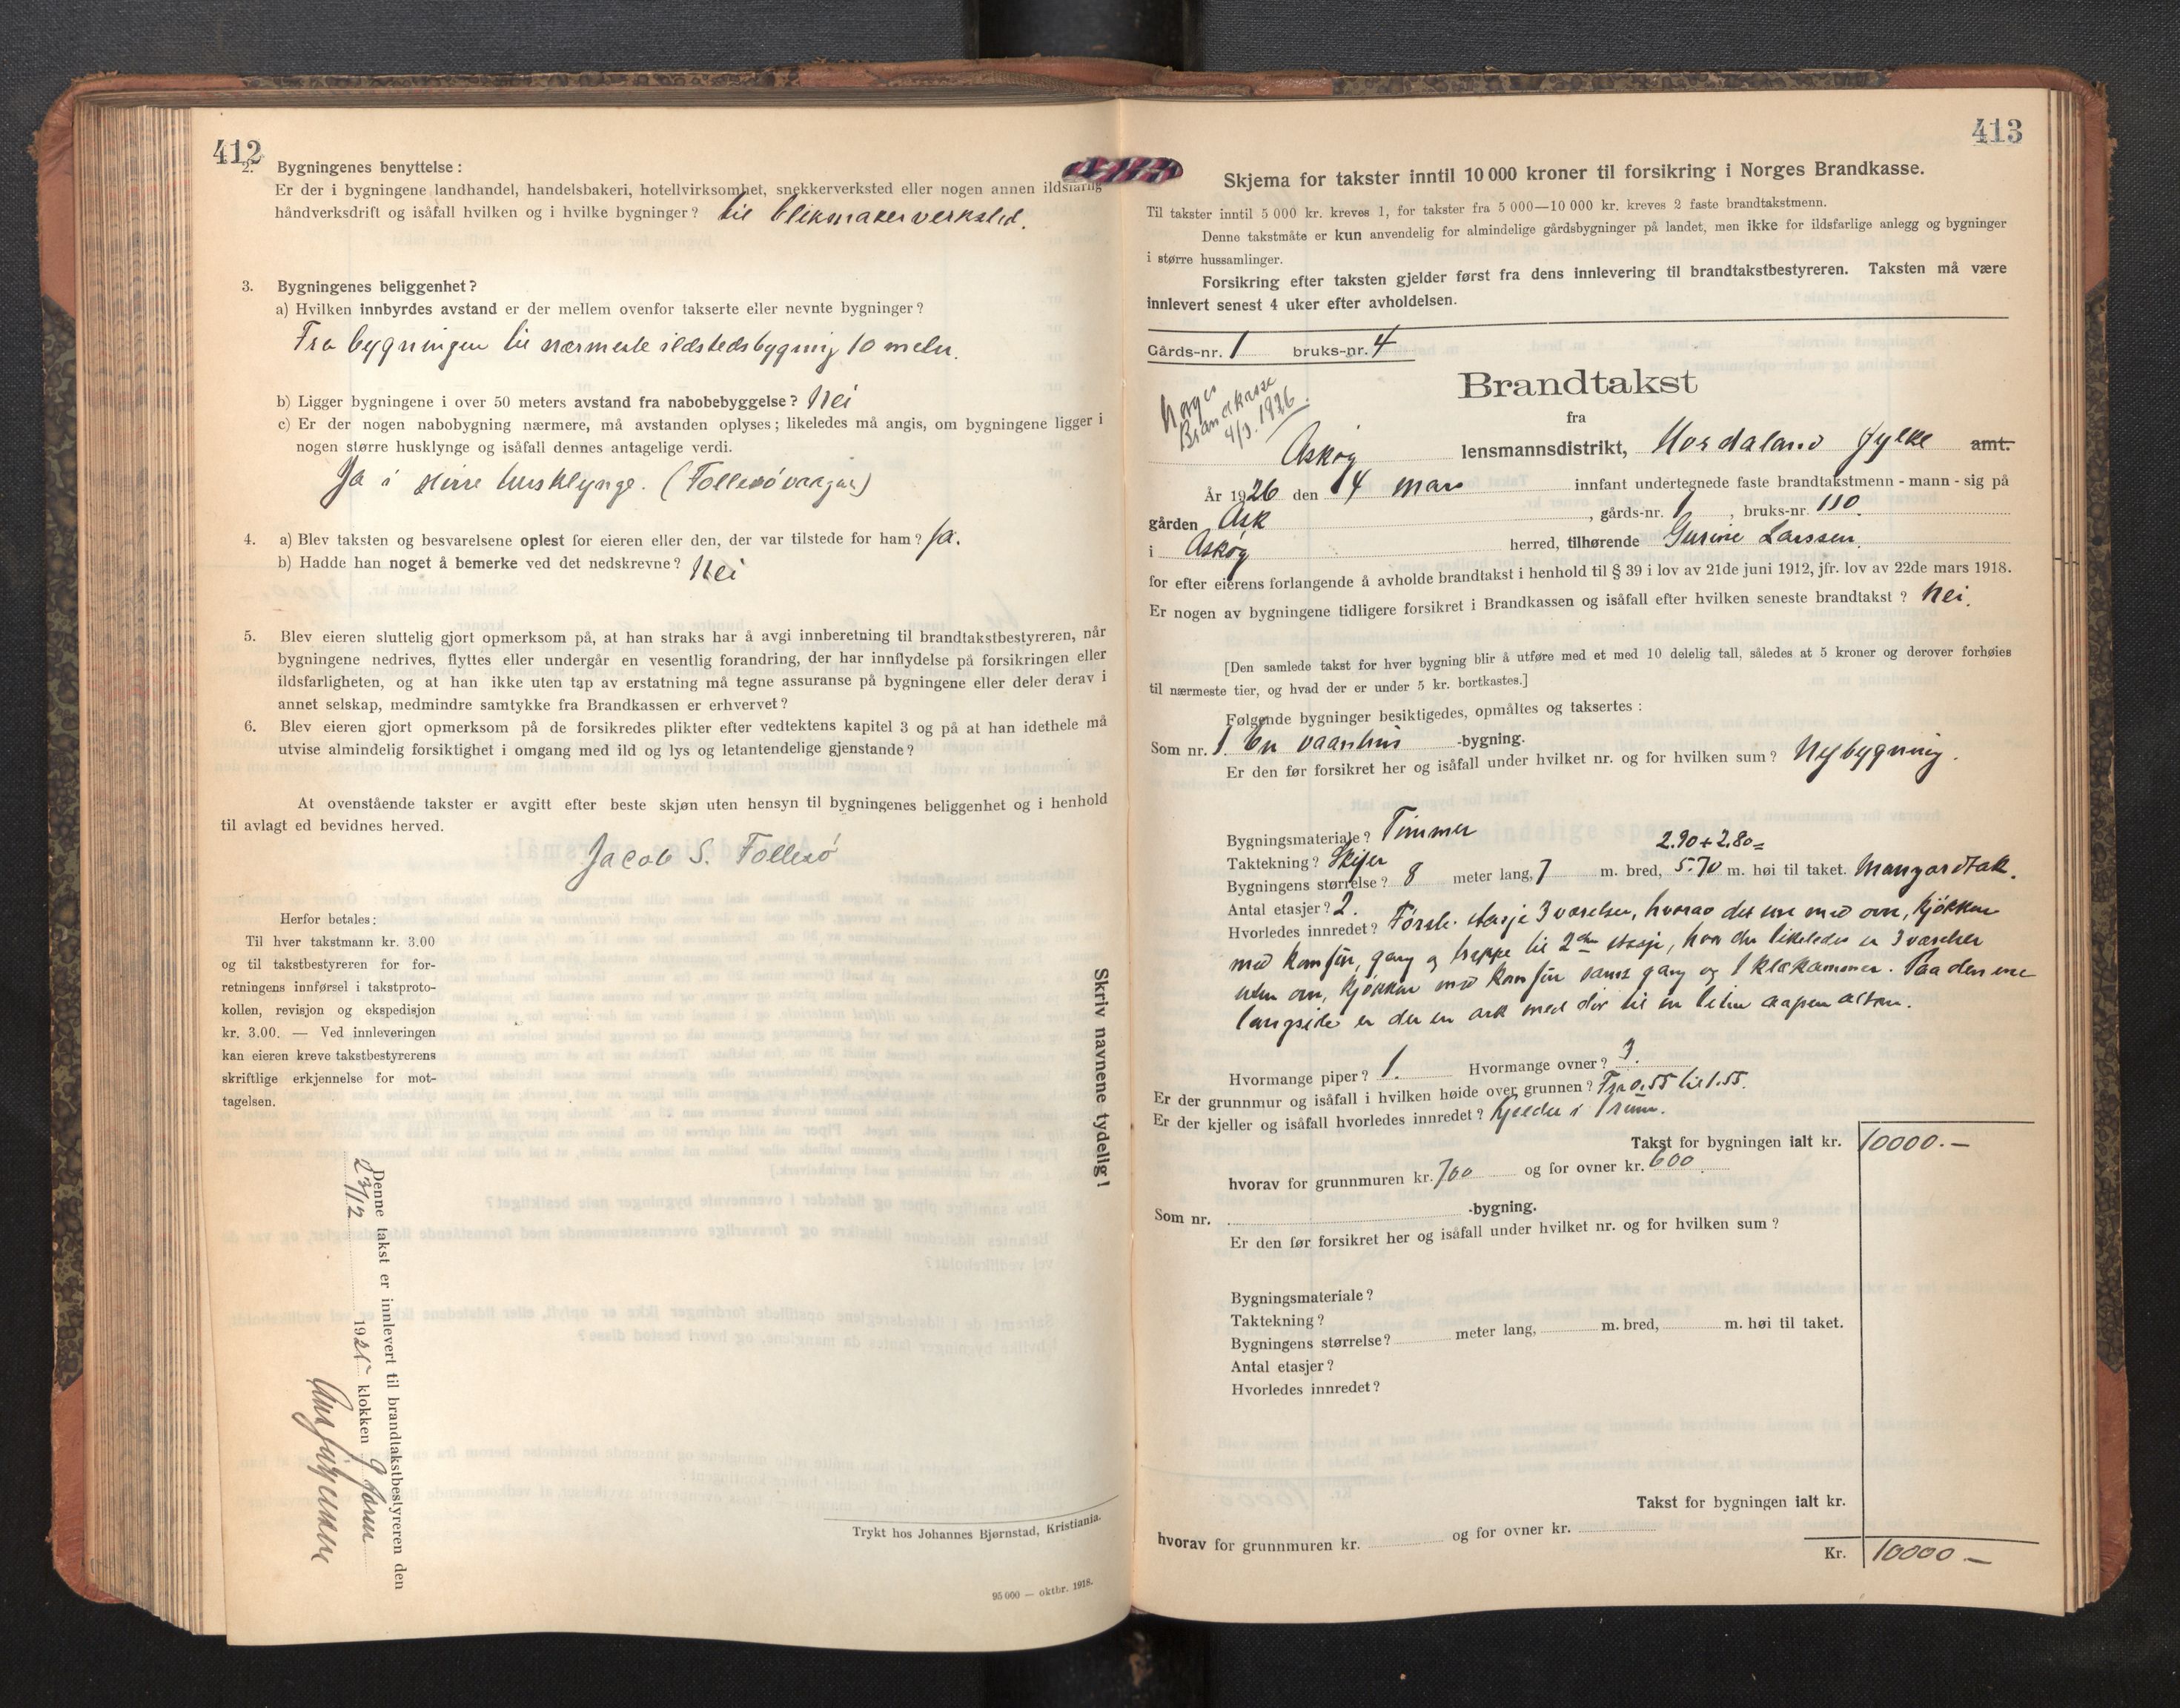 412
2. Bygningenes benyttelse:
Er der i bygningene landhandel, handelsbakeri, hotellvirksomhet, snekkerverksted eller nogen annen ildsfarlig
håndverksdrift og isåfall hvilken og i hvilke bygninger? til blikmakerverksted.
3. Bygningenes beliggenhet?
a) Hvilken innbyrdes avstand er der mellem ovenfor takserte eller nevnte bygninger?
Fra bygningen til nærmeste ildstedsbygning 10 meter.
b) Ligger bygningene i over 50 meters avstand fra nabobebyggelse? Nei
c) Er der nogen nabobygning nærmere, må avstanden oplyses; likeledes må angis, om bygningene ligger i
nogen større husklynge og isåfall dennes antagelige verdi.
Ja i større husklynge. (Follesøvaagen)
4. a) Blev taksten og besvarelsene oplest for eieren eller den, der var tilstede for ham? Ja.
b) Hadde han noget å bemerke ved det nedskrevne? Nei
5. Blev eieren sluttelig gjort opmerksom på, at han straks har å avgi innberetning til brandtakstbestyreren, når
bygningene nedrives, flyttes eller undergår en vesentlig forandring, der har innflydelse på forsikringen eller
ildsfarligheten, og at han ikke uten tap av erstatning må tegne assuranse på bygningene eller deler derav i
annet selskap, medmindre samtykke fra Brandkassen er erhvervet?
6. Blev eieren gjort opmerksom på de forsikredes plikter efter vedtektens kapitel 3 og på at han idethele må
utvise almindelig forsiktighet i omgang med ild og lys og letantendelige gjenstande?
At ovenstående takster er avgitt efter beste skjøn uten hensyn til bygningenes beliggenhet og i henhold
til avlagt ed bevidnes herved.
Jacob S. Follesø
Herfor betales:
Til hver takstmann kr. 3.00
og til takstbestyreren for for-
retningens innførsel i takstproto-
kollen, revisjon og ekspedisjon
kr. 3.00. — Ved innleveringen
kan eieren kreve takstbestyrerens
skriftlige erkjennelse for mot-
tagelsen.
Denne takst er innlevert til brandtakstbestyreren den
23/12 1925 klokken 9 form
Skriv navnene tydelig!
Trykt hos Johannes Bjørnstad, Kristiania.
95 000 — oktbr. 1918.
413
Skjema for takster inntil 10 000 kroner til forsikring i Norges Brandkasse.
Til takster inntil 5 000 kr. kreves 1, for takster fra 5 000—10 000 kr. kreves 2 faste brandtakstmenn.
Denne takstmåte er kun anvendelig for almindelige gårdsbygninger på landet, men ikke for ildsfarlige anlegg og bygninger
i større hussamlinger.
Forsikring efter taksten gjelder først fra dens innlevering til brandtakstbestyreren. Taksten må være
innlevert senest 4 uker efter avholdelsen.
Gårds-nr. 1 bruks-nr. 4
Norges
Brandkasse
4/3. 1926.
Brandtakst
fra
Askøy lensmannsdistrikt, Hordaland fylke amt.
År 1926 den 4 mars innfant undertegnede faste brandtakstmenn - mann - sig på
gården Ask, gårds-nr. 1, bruks-nr. 110.
i Askøy herred, tilhørende Gurine Larssen.
for efter eierens forlangende å avholde brandtakst i henhold til § 39 i lov av 21de juni 1912, jfr. lov av 22de mars 1918.
Er nogen av bygningene tidligere forsikret i Brandkassen og isåfall efter hvilken seneste brandtakst? Nei.
[Den samlede takst for hver bygning blir å utføre med et med 10 delelig tall, således at 5 kroner og derover forhøies
til nærmeste tier, og hvad der er under 5 kr. bortkastes.]
Følgende bygninger besiktigedes, opmåltes og taksertes:
Som nr. 1. En vaanhus -bygning.
Er den før forsikret her og isåfall under hvilket nr. og for hvilken sum? Nybygning.
Bygningsmateriale? Tømmer
Taktekning? Skifer
2.90+2.80=
Bygningens størrelse? 8 meter lang, 7 m. bred, 5.70 m. høi til taket. Mansardtak.
Antal etasjer? 2.
Hvorledes innredet? Første etasje 3 værelser, hvorav det ene med ovn, kjøkken
med komfür, gang og trappe til 2den etasje, hvor der likeledes er 3 værelser
uten ovn, kjøkken med komfür samt gang og 1 klækammer. Paa den ene
langside er der en ark med dør til en liten aapen altan.
Hvormange piper? 1. Hvormange ovner? 3.
Er der grunnmur og isåfall i hvilken høide over grunnen? Fra 0.55 til 1.55.
Er der kjeller og isåfall hvorledes innredet? Kjelder i 1 rum.
Takst for bygningen ialt kr. 10000.—
hvorav for grunnmuren kr. 700 og for ovner kr. 600
Som nr. -bygning.
Er den før forsikret her og isåfall under hvilket nr. og for hvilken sum?
Bygningsmateriale?
Taktekning?
Bygningens størrelse? meter lang, m. bred, m. høi til taket.
Antal etasjer?
Hvorledes innredet?
Takst for bygningen ialt kr.
hvorav for grunnmuren kr. og for ovner kr.
Kr. 10000 —